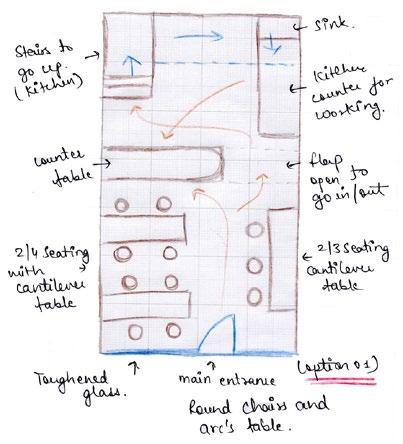 Sink.
Stairs to
go up.
(Kitchen)
Kitchen
counter for
working.
counter
table
flap
open to
go in/out
2/4 seating
with
cantilever
table
2/3 seating
cantilever
table
(option 01)
Toughened
glass.
main entrance
Round chairs and
arc's table.